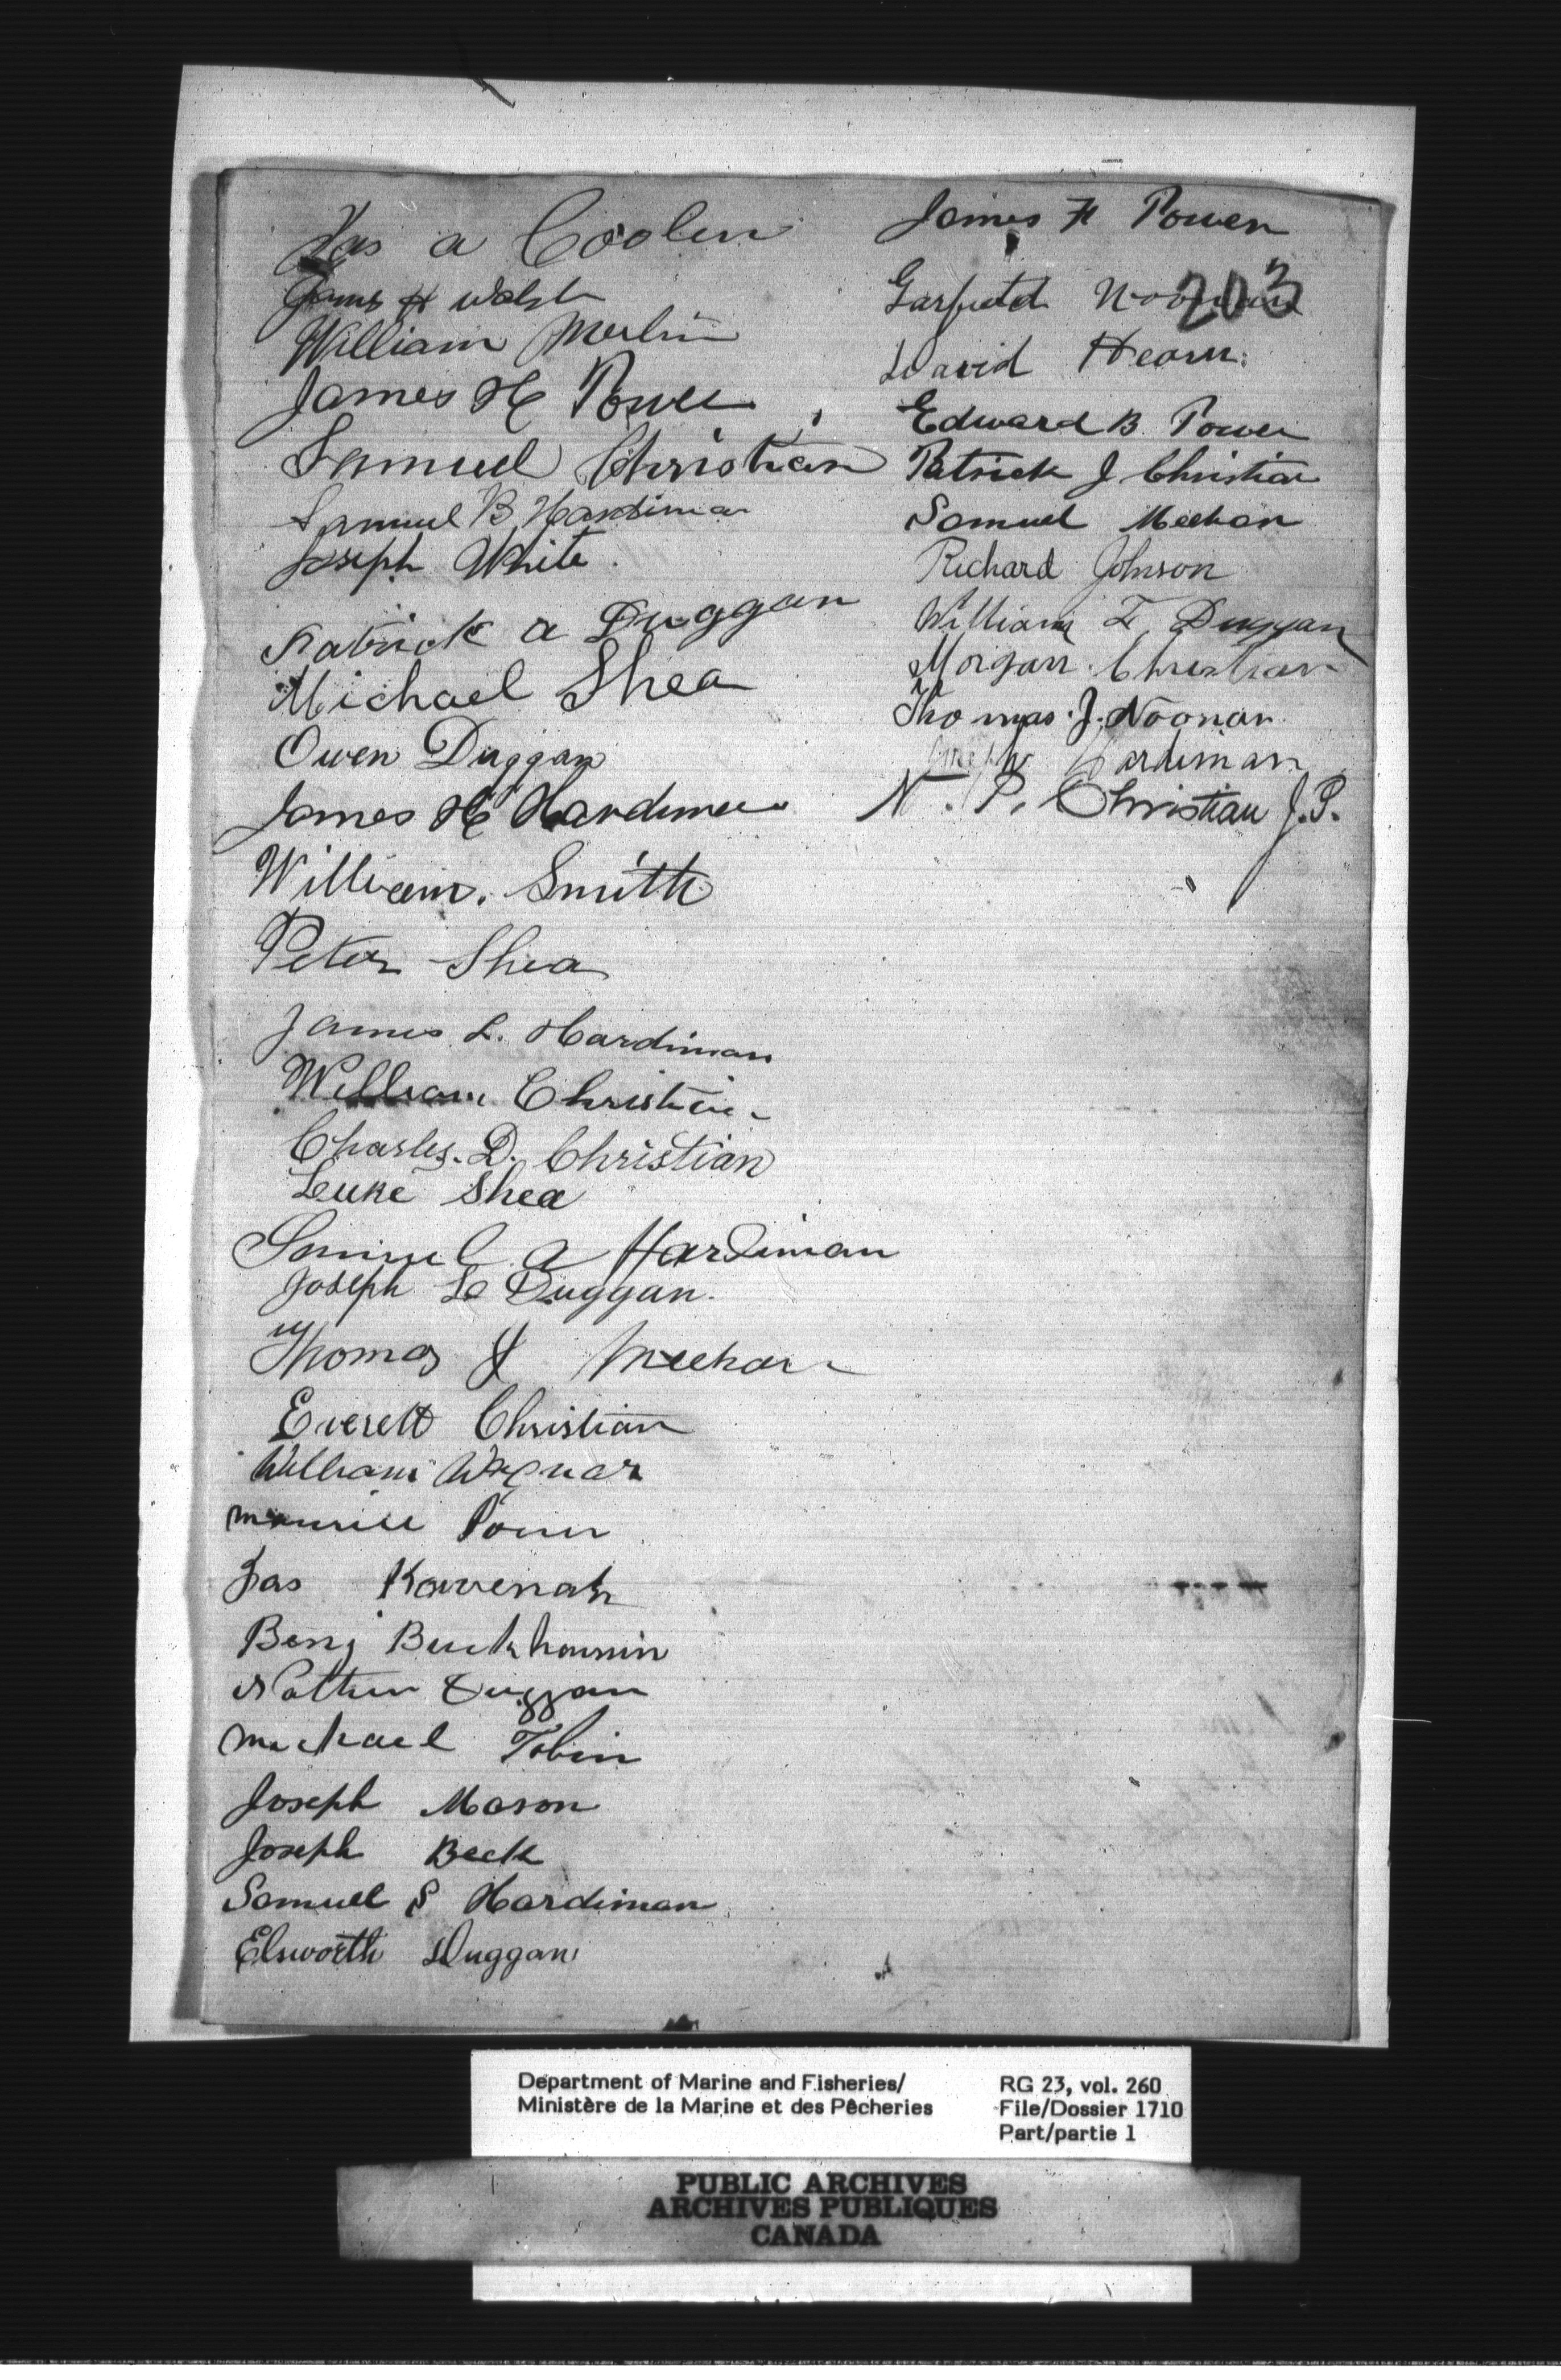 Jas a Coolen
James H Walsh
William Merlin
James H Power
Samuel Christian
Samuel B Hardiman
Joseph White
Patrick a Duggan
Michael Shea
Owen Duggan
James H Hardiman
William. Smith
Peter Shea
James L. Hardiman
William Christian
Charles. D. Christian
Luke Shea
Samuel a Hardiman
Joseph Le Duggan.
Thomas J Meehan
Everett Christian
William
Maurice Power
Jas Kavvenah
Benj
Duggan
Michael Tobin
Joseph Mason
Joseph Beck
Samuel S Hardiman
Elsworth Duggan
James F Power
203
Garfield Noonan
David Hearn.
Edward B Power
Patrick J Christian
Samuel Meehan
Richard Johnson
William F Duggan
Morgan Christian
Thomas. J. Noonan
Joseph Hardiman
N. P. Christian J.P.
Department of Marine and Fisheries/
Ministère de la Marine et des Pêcheries
RG 23, vol. 260
File/Dossier 1710
Part/partie 1
PUBLIC ARCHIVES
ARCHIVES PUBLIQUES
CANADA